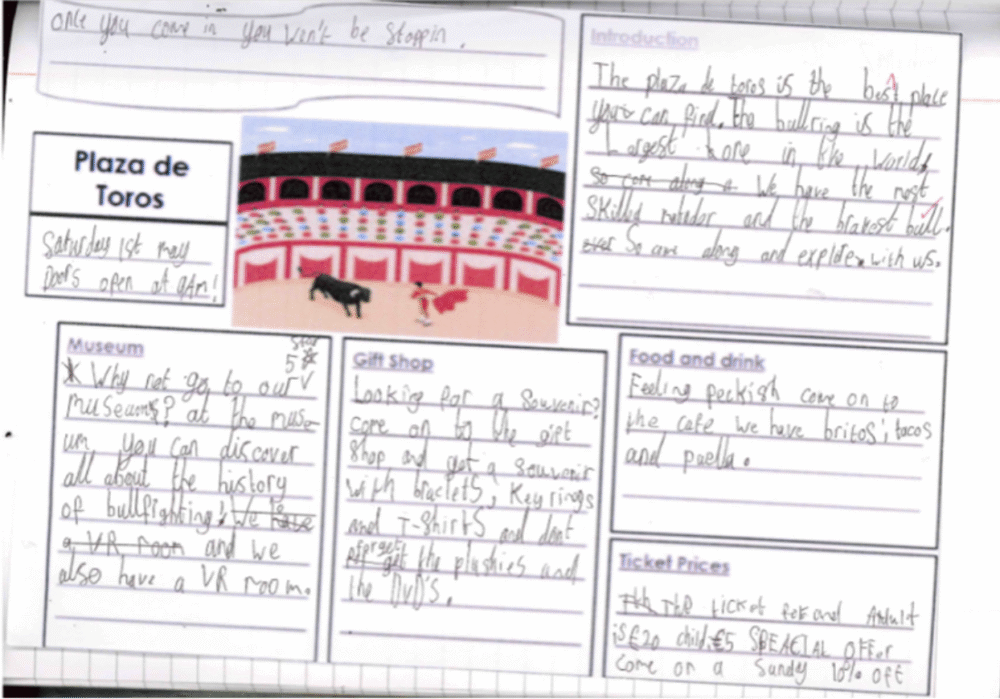 once you come in you won't be stoppin.
Introduction
The plaza de toros is the best place
you can find. the bullring is the
Largest one in the world,
So come along a We have the most
Skilled matador and the brakest bull.
ever So come along and explore with us.
Plaza de
Toros
Saturday 1st may
Doors open at 9Am!
Museum
Why not go to our 5 star
museum? at the muse
um, you can discover
all about the history
of bullfighting! We have
a VR room and we
also have a VR room.
Gift Shop
Looking for a souvenir?
come on to the gift
shop and get a souvenir
with braclets, Keyrings
and T-Shirts and dont
forget the plushies and
the DVD's.
Food and drink
Feeling peckish come on to
the cafe we have britos, tacos
and puella.
Ticket Prices
The ticket for and Adult
is £20 child £5 SPEACIAL OFFER
come on a Sundy 10% off